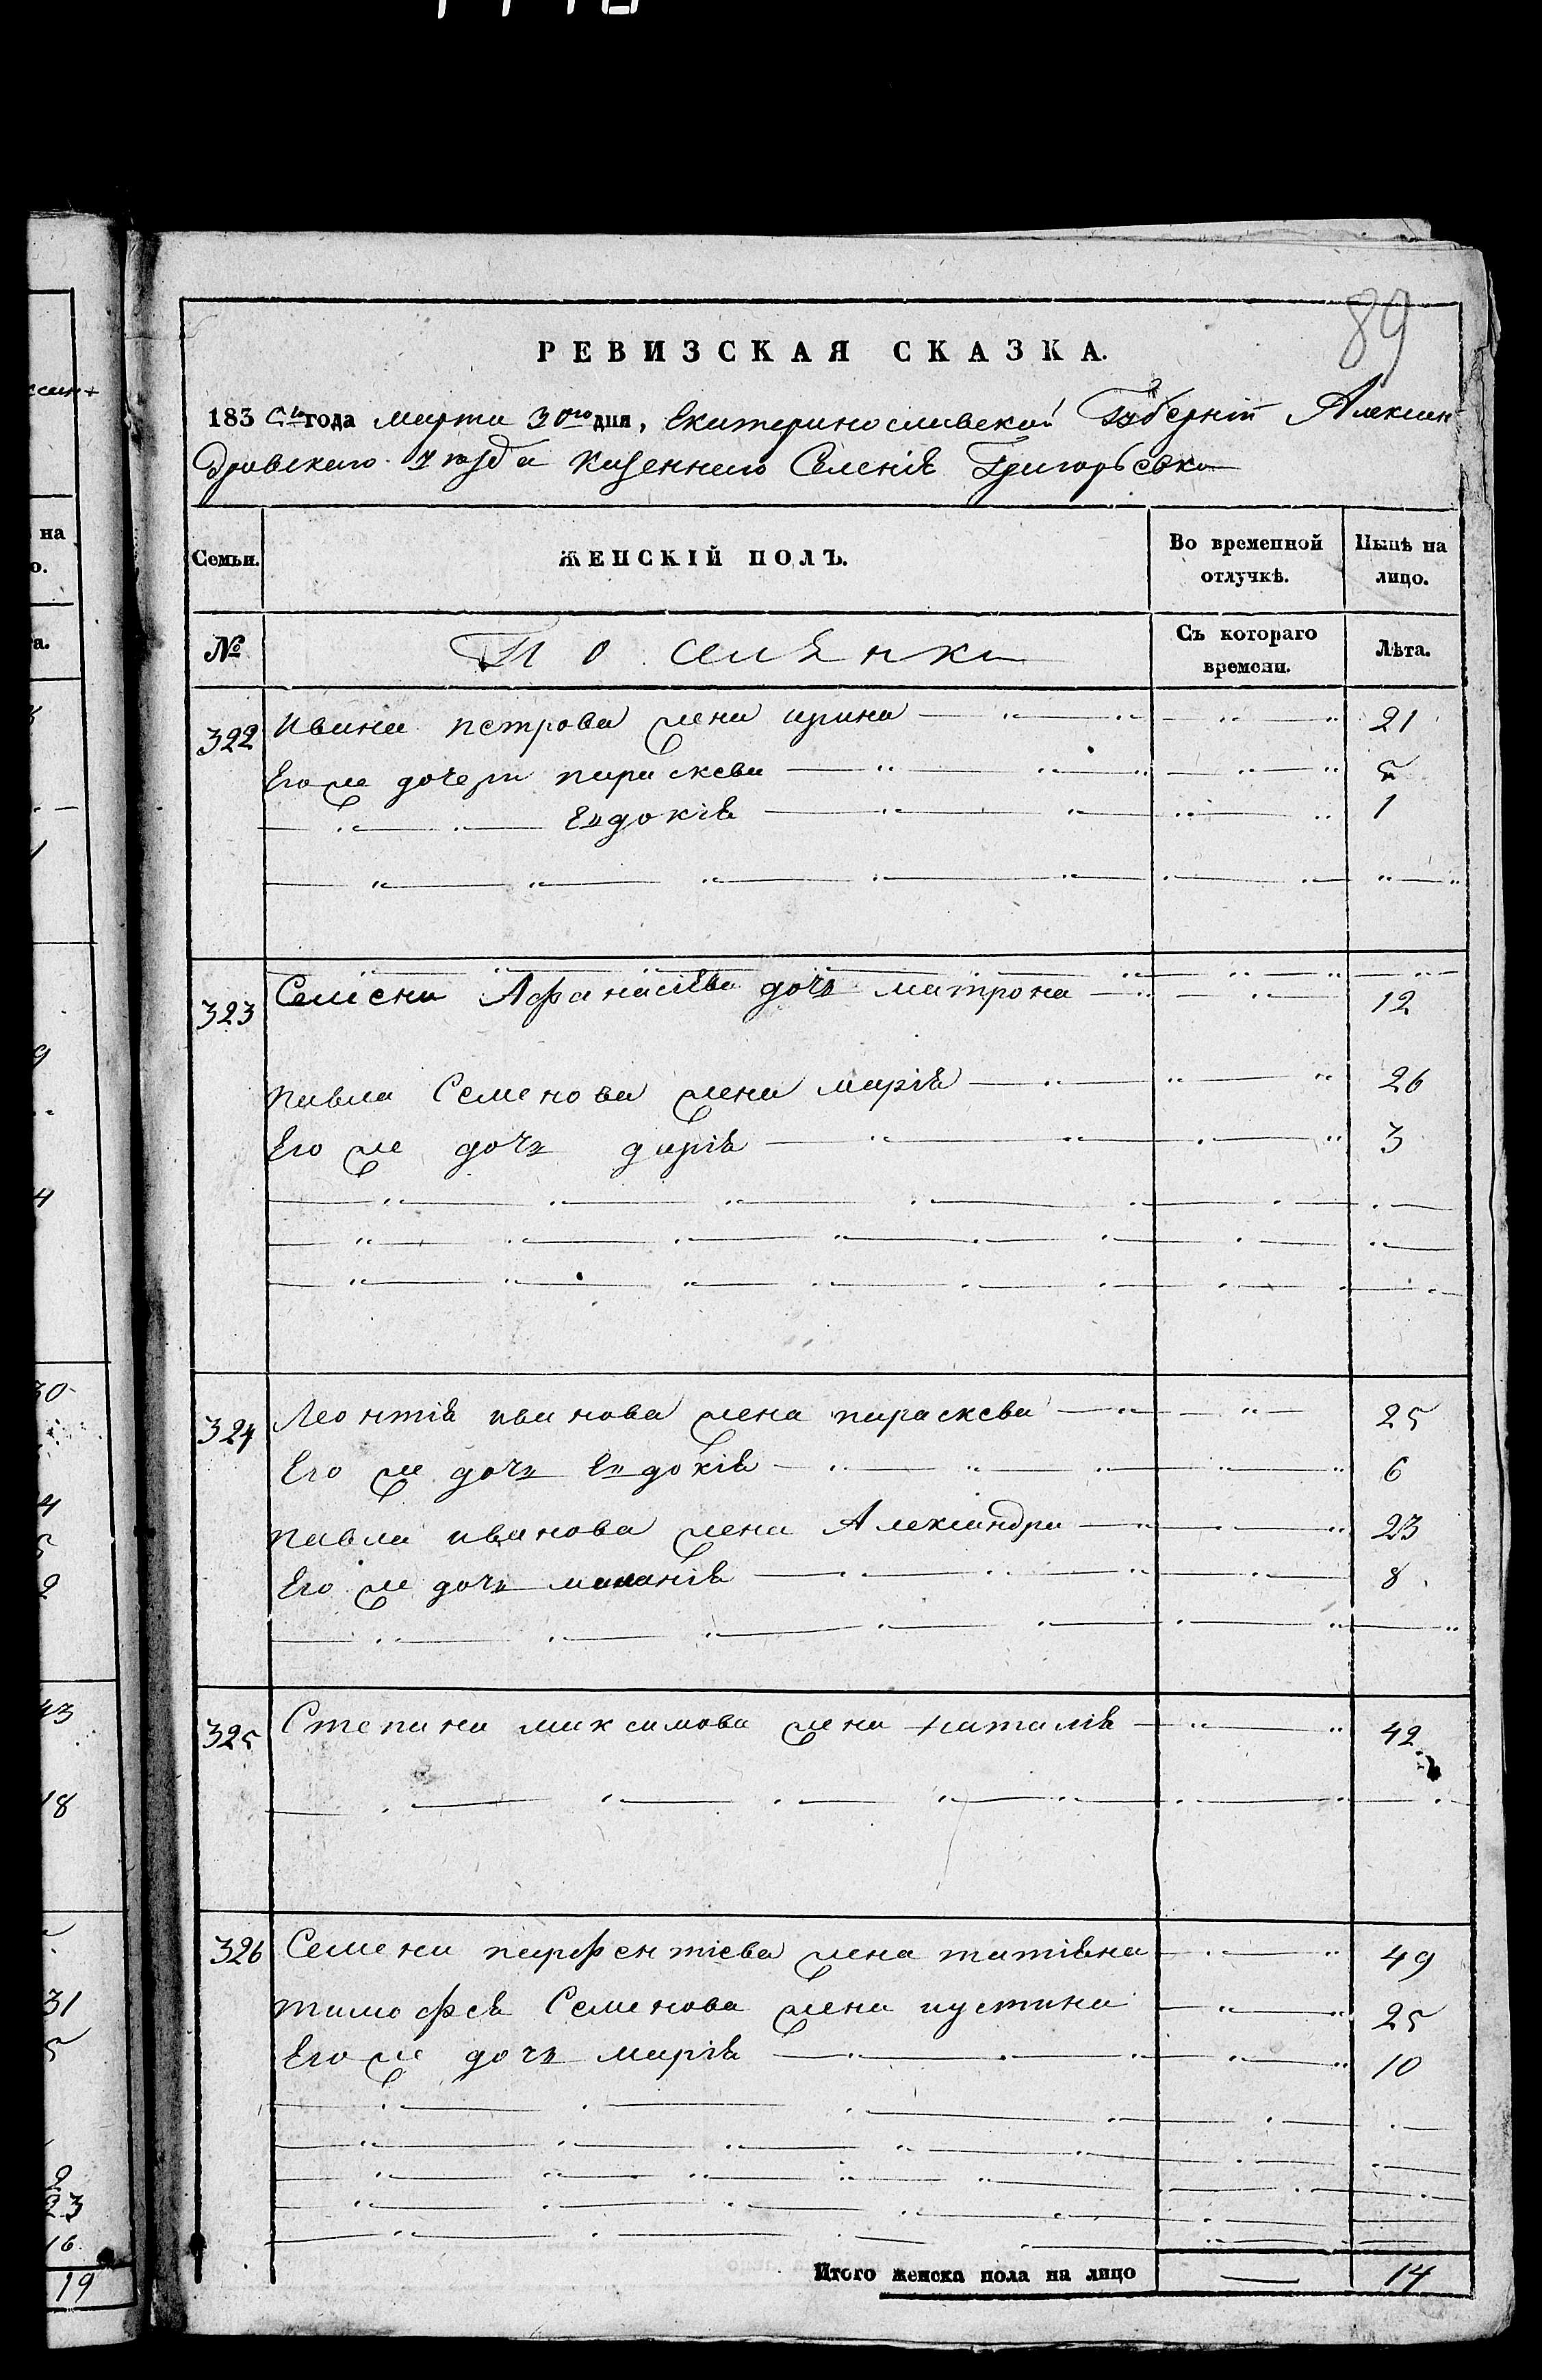 89
РЕВИЗСКАЯ СКАЗКА.
1835го года марта 30го дня, Екатеринославской Губерніи Алексан
дровскаго уезда казеннаго Селенія Григорьевка
Семьи. ЖЕНСКІЙ ПОЛЪ. Во временной отлучкѣ. Нынѣ на лицо.
№ Поселянки Съ котораго времени. Лѣта.
322 Ивана петрова жена ирина 21
Его же дочери параскева 5
Евдокія 1
323 Семена Афанасіева дочь матрона 12
павла Семенова жена марія 26
Его же дочь дарія 3
324 Леонтія иванова жена параскева 25
Его же дочь Евдокія 6
павла иванова жена Александра 23
Его же дочь маланія 8
325 Степана максимова жена наталія 42
326 Семена парфентіева жена татіяна 49
тимофея Семенова жена иустина 25
Его же дочь марія 10
Итого женска пола на лицо — 14
на
о.
а.
9
4
30
4
5
2
43
18
31
5
2
23
16
19